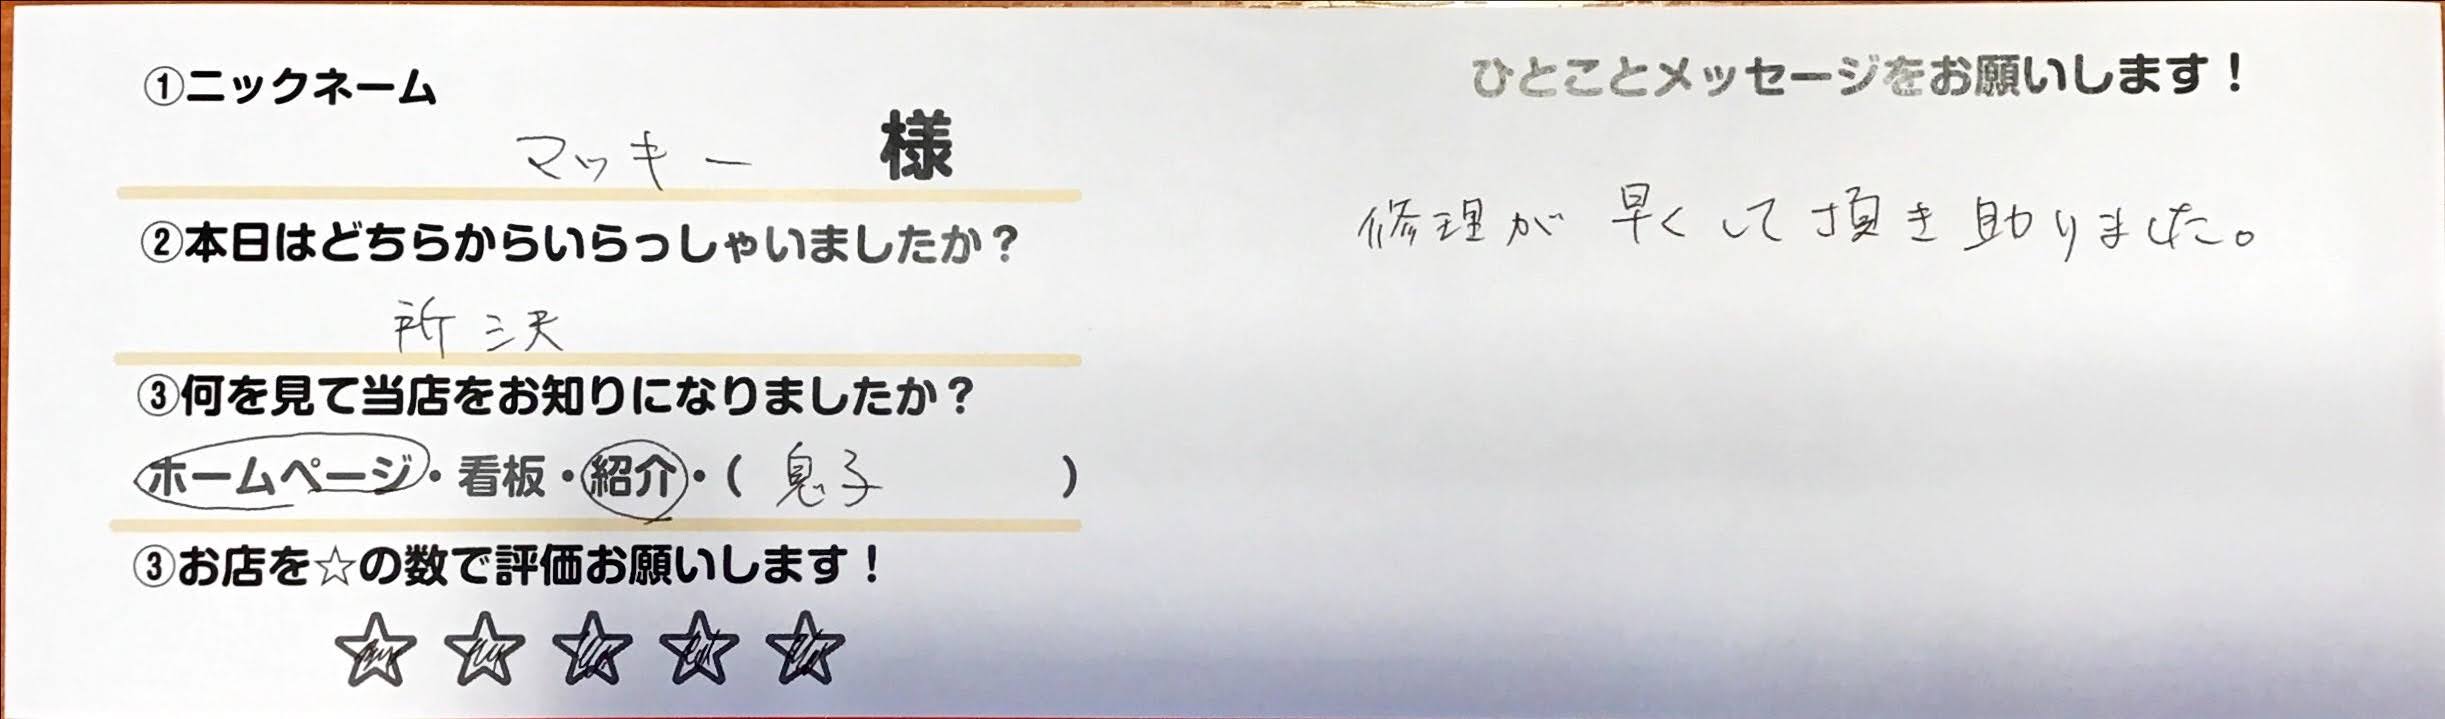 ①ニックネーム
マッキー 様
②本日はどちらからいらっしゃいましたか？
所沢
③何を見て当店をお知りになりましたか？
ホームページ・看板・紹介・( 息子 )
③お店を☆の数で評価お願いします！
☆☆☆☆☆
ひとことメッセージをお願いします！
修理が早くして頂き助りました。